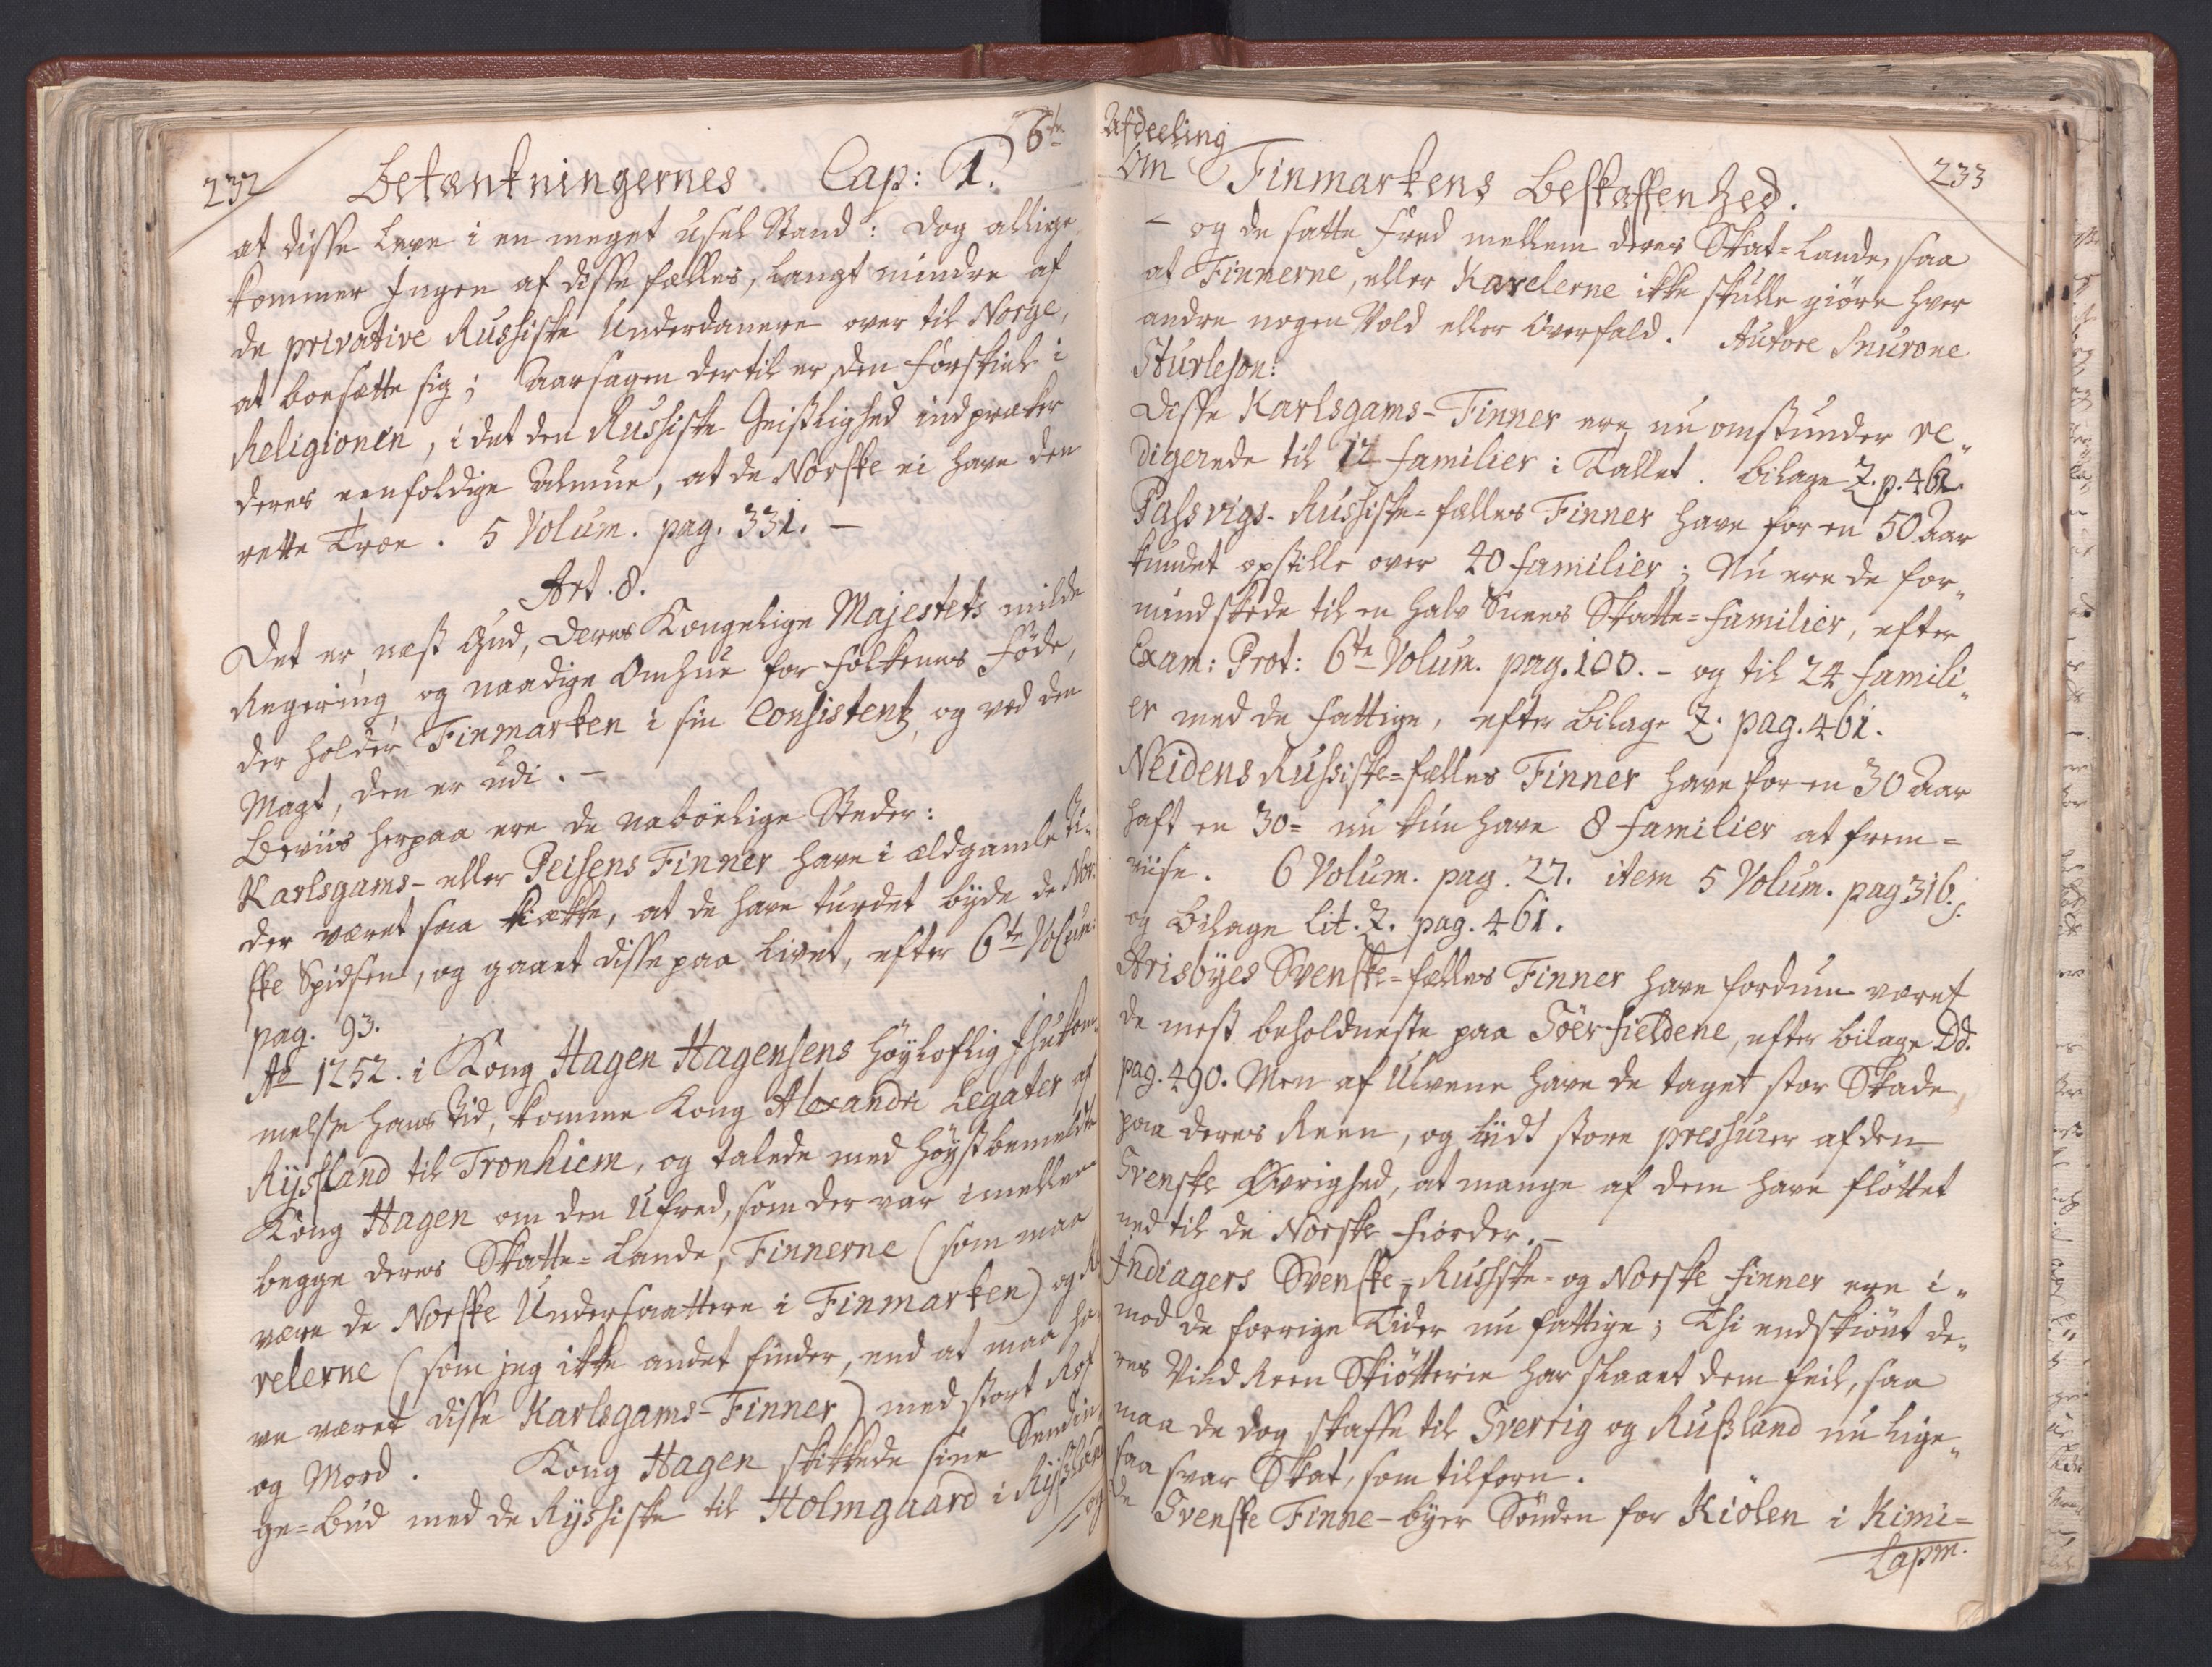 232
Betænkningernes Cap: 1.
6te
at disse leve i en meget ussel Stand: dog allige-
kommer Ingen af disse fælles, langt mindre af
de privative Russiske Underdanere over til Norge,
at boesætte sig; Aarsagen dertil er, den Forskiel i
Religionen, i det den Russiske Geistlighed indpræker
deres eenfoldige Almue, at de Norske ei have den
rette Troe. 5 Volum. pag. 331. —
Art. 8.
Det er næst Gud, Deres Kongelige Majestets milde
Regering og naadige Omhue for folkenes Føde,
der holder Finmarken i sin Consistentz, og ved den
Magt, den er udi. —
Beviis herpaa ere de naboelige Steder:
Karlsgams- eller Peisens Finner have i ældgamle ti-
der været saa kiække, at de have turdet byde de Nor-
ske Spidsen, og gaaet disse paa Livet, efter 6te Volum:
pag. 93.
Ao 1252. i Kong Hagen Hagensens Høyloflig Ihukom-
melse hans Tid, komme Kong Alexandri Legater af
Rysland til Tronhiem, og talede med Høystbemeldte
Kong Hagen om den Ufred, som der var imellem
begge deres Skatte-Lande, Finnerne (som maa
være de Norske Undersaattere i Finmarken) og Ka-
relerne (som jeg ikke andet finder, end at maa ha-
ve været disse Karlsgams-Finner) med stort Rof
og Mord. Kong Hagen skikkede sine Sendin-
ge-Bud med de Ryssiske til Holmgaard i Rysland
— og
Afdeeling
Om Finmarkens Beskaffenhed.
233
— og de satte Fred mellem deres Skat-Lande, saa
at Finnerne, eller Karelerne ikke skulle giøre hver
andre nogen Vold eller Overfald. Autore Snurone
Sturleson:
Disse Karlsgams-Finner ere nu omstunder re-
digerede til 12 familier i Tallet. Bilage Z. p. 461.
Passvigs-Russiske-fælles Finner have for en 50 Aar
kundet opstille over 40 familier; Nu ere de for-
mindskede til en halv Snees Skatte-familier, efter
Exam: Prot: 6te Volum. pag. 100. - og til 24 famili-
er med de fattige, efter Bilage Z. pag. 461.
Neidens Russiske-fælles Finner have for en 30 Aar
haft en 30= nu kun have 8 familier at frem-
viise. 6 Volum. pag. 27. item 5 Volum. pag 316.
og Bilage Lit. Z. pag. 461.
Arisbyes Svenske-fælles Finner have fordum været
de mest beholdneste paa Søer-fieldene, efter bilage Dd.
pag. 490. Men af Ulvene have de taget stor Skade,
paa deres Reen, og liidt store pressurer af den
Svenske Øvrighed, at mange af dem have fløttet
ned til de Norske fiorder. —
Indiagers Svenske-Russske- og Norske finner ere i-
mod de forrige Tider nu fattige; Thi endskiønt de-
res Vild Reen Skiøtterie har slaaet dem feil, saa
maa de dog skaffe til Sverrig og Rusland nu lige-
saa svar Skat, som tilforn.
De Svenske Finne-byer Sønden for Kiølen i Kimi-
Lapm.